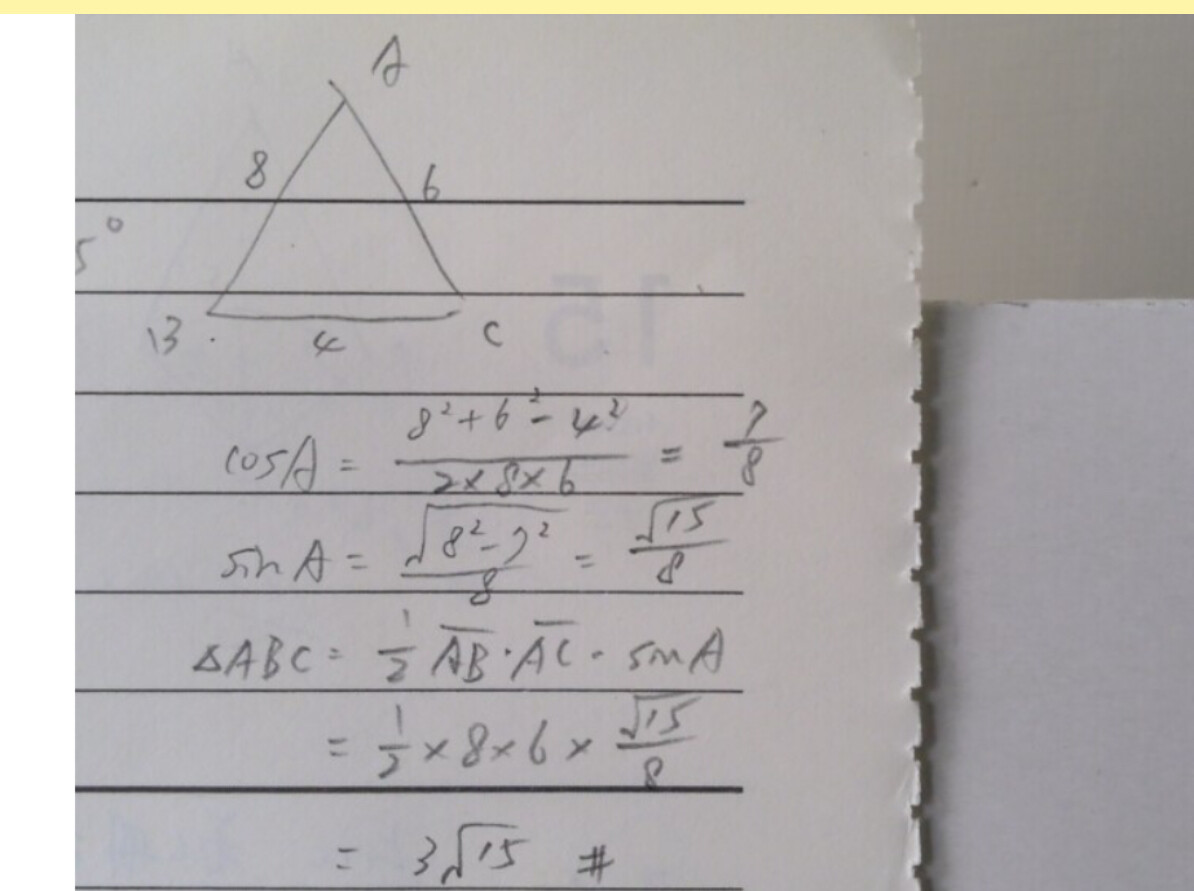 A
8 6
5°
B 4 C
cosA = \frac{8²+6²-4²}{2×8×6} = \frac{7}{8}
sinA = \frac{\sqrt{8²-7²}}{8} = \frac{\sqrt{15}}{8}
△ABC = \frac{1}{2} \overline{AB}·\overline{AC}·sinA
= \frac{1}{2}×8×6×\frac{\sqrt{15}}{8}
= 3\sqrt{15} #